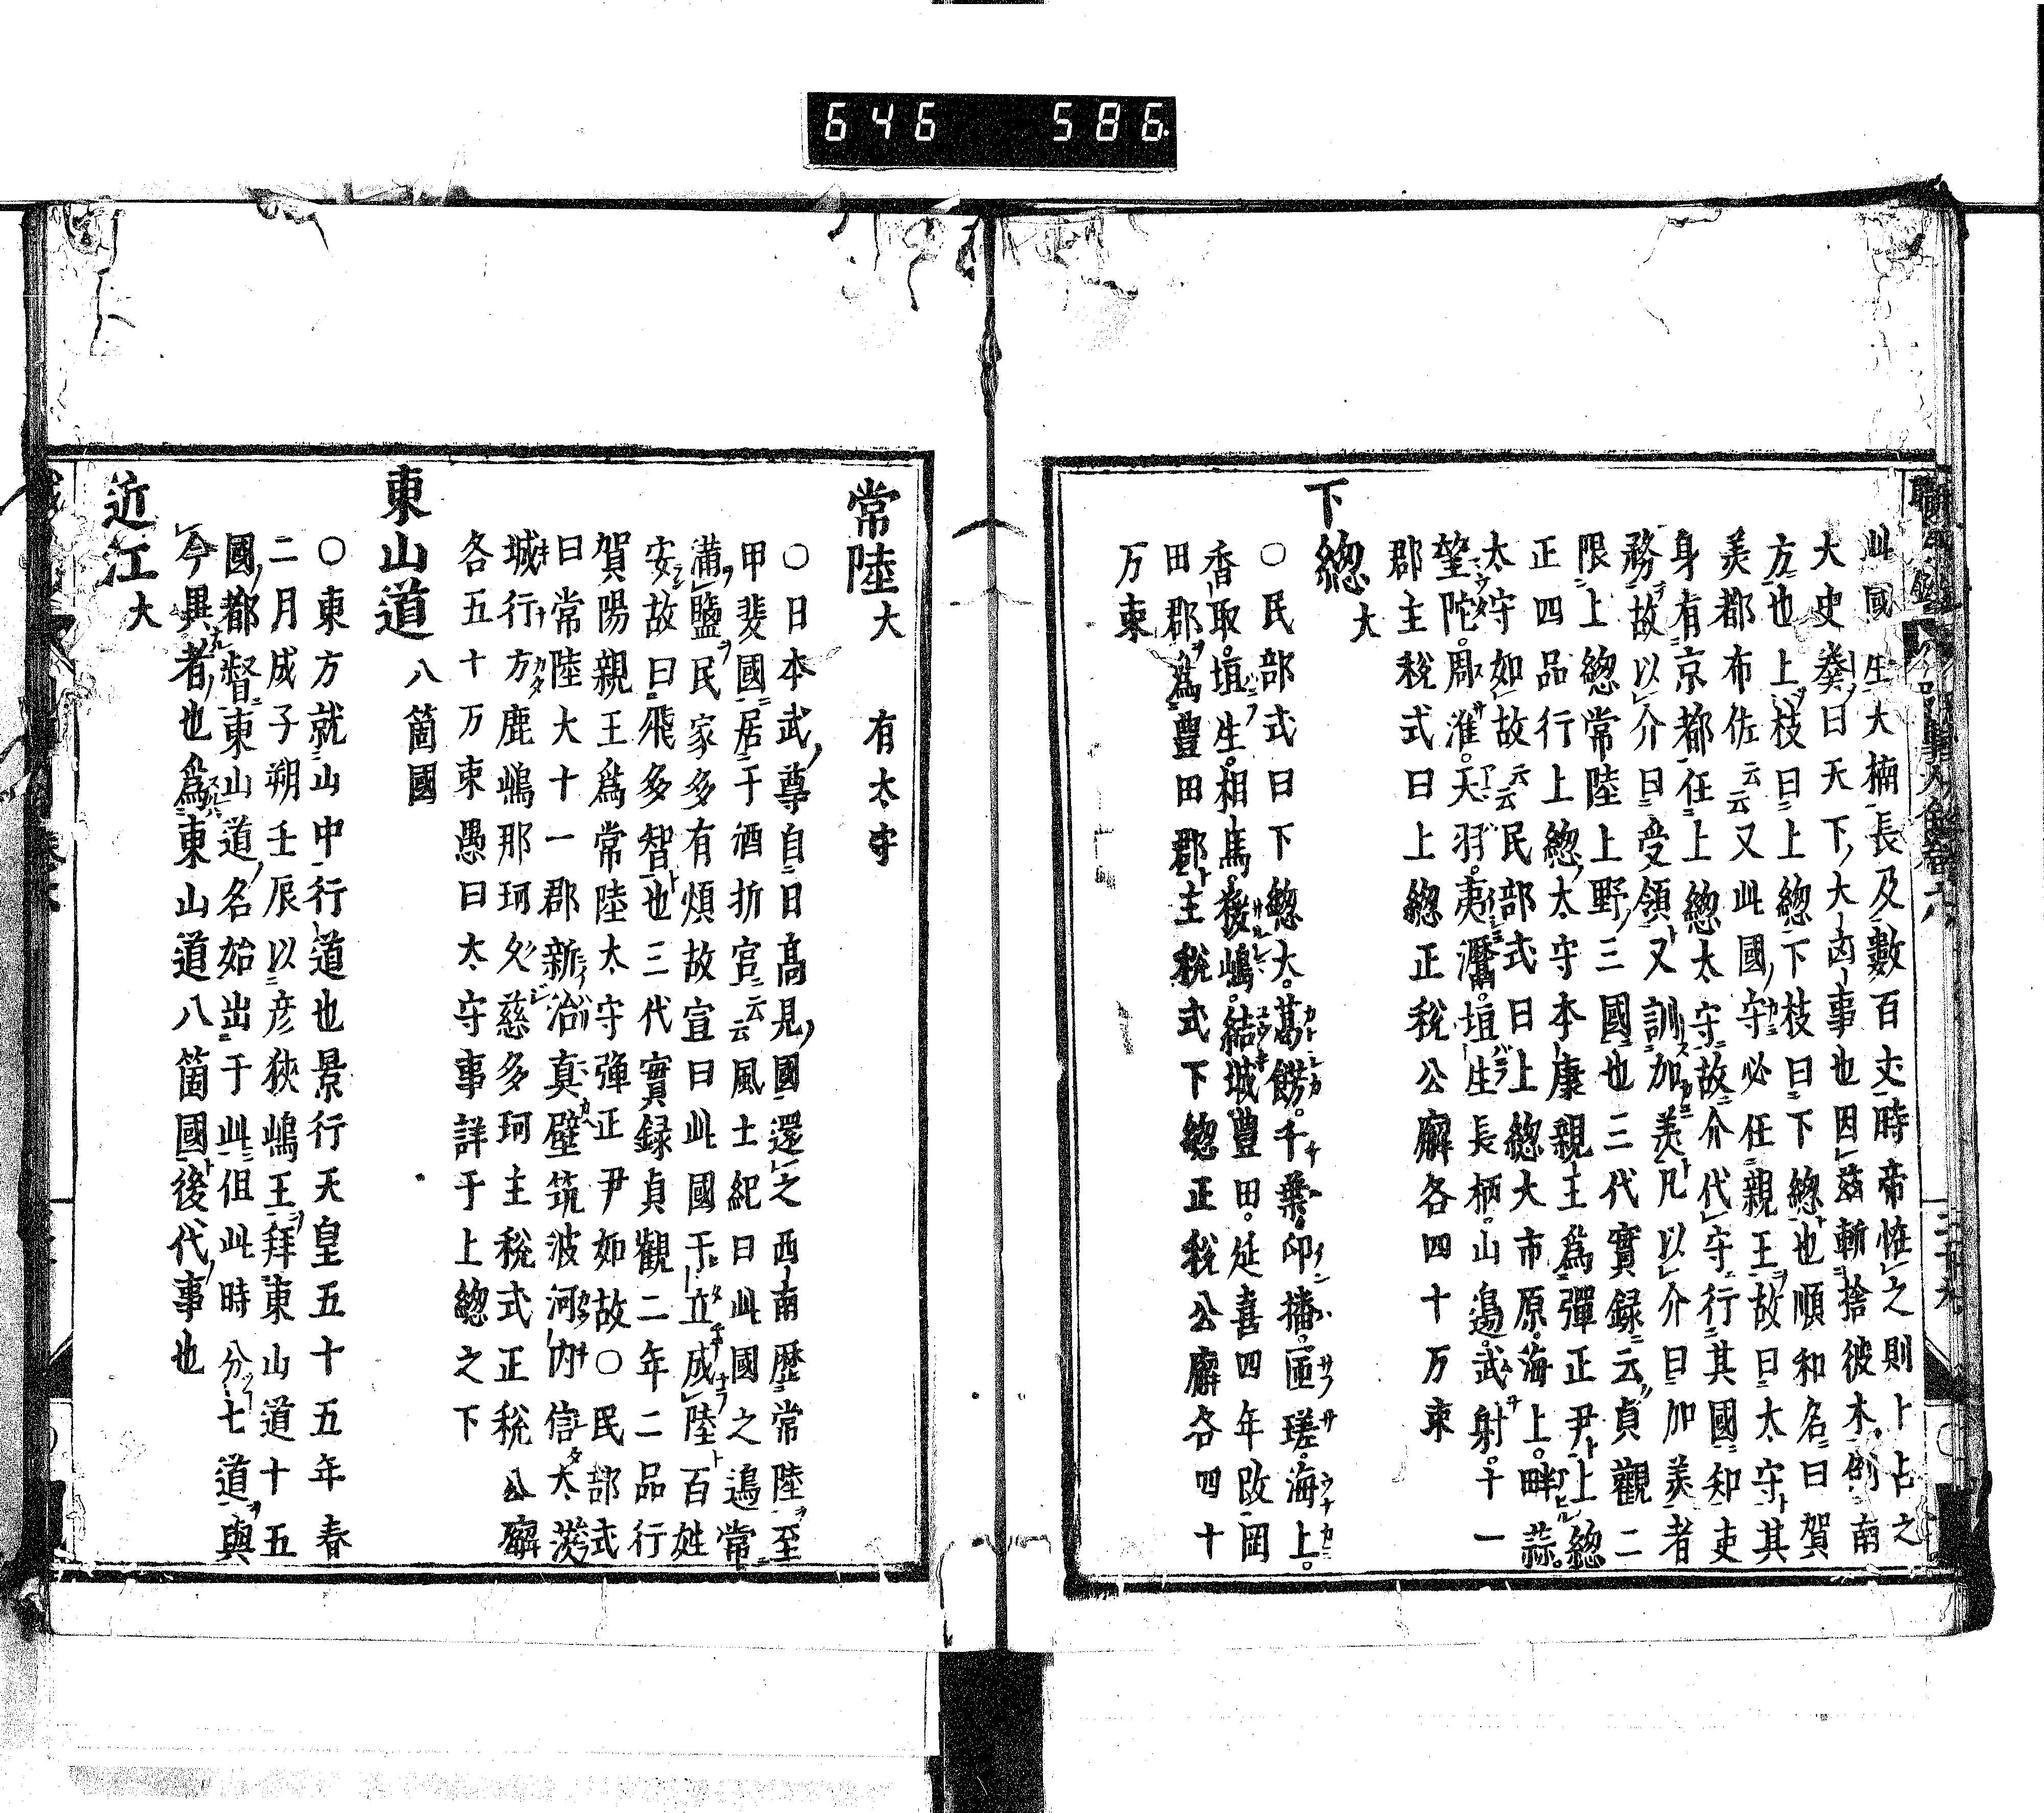 646 586
此國生大楠長及數百丈時帝恠之則卜占之
大史奏曰天下大凶事也因茲斬捨彼木倒南
方也上枝曰上緫下枝曰下緫也順和名曰賀
美都布佐云云又此國守必任親王故曰太守其
身有京都任上緫太守故介代守行其國知吏
務故以介曰受領又訓加美凡以介曰加美者
限上緫常陸上野三國也三代實録云貞觀二
正四品行上緫太守本康親王為彈正尹上緫
太守如故云云民部式曰上緫大市原海上畔蒜
望陀周淮天羽夷灊埴生長柄山邉武射十一
郡主稅式曰上緫正稅公廨各四十万束
下緫大
〇民部式曰下緫大葛餝千葉印播匝瑳海上
香取埴生相馬猨嶋結城豊田延喜四年改岡
田郡為豊田郡主稅式下緫正稅公廨各四十
万束
常陸大 有太守
〇日本武尊自日髙見國還之西南歷常陸至
甲斐國居于酒折宮云云風土紀曰此國之邉常
滿鹽民家多有煩故宣曰此國于立成陸百姓
安故曰飛多智也三代實録貞觀二年二品行
賀陽親王為常陸太守彈正尹如故〇民部式
曰常陸大十一郡新治真壁筑波河內信太茨
城行方鹿嶋那珂久慈多珂主稅式正稅公廨
各五十万束愚曰太守事詳于上緫之下
東山道八箇國
〇東方就山中行道也景行天皇五十五年春
二月戍子朔壬辰以彦狹嶋王拜東山道十五
國都督東山道名始出于此但此時分七道與
今異者也為東山道八箇國後代事也
近江大